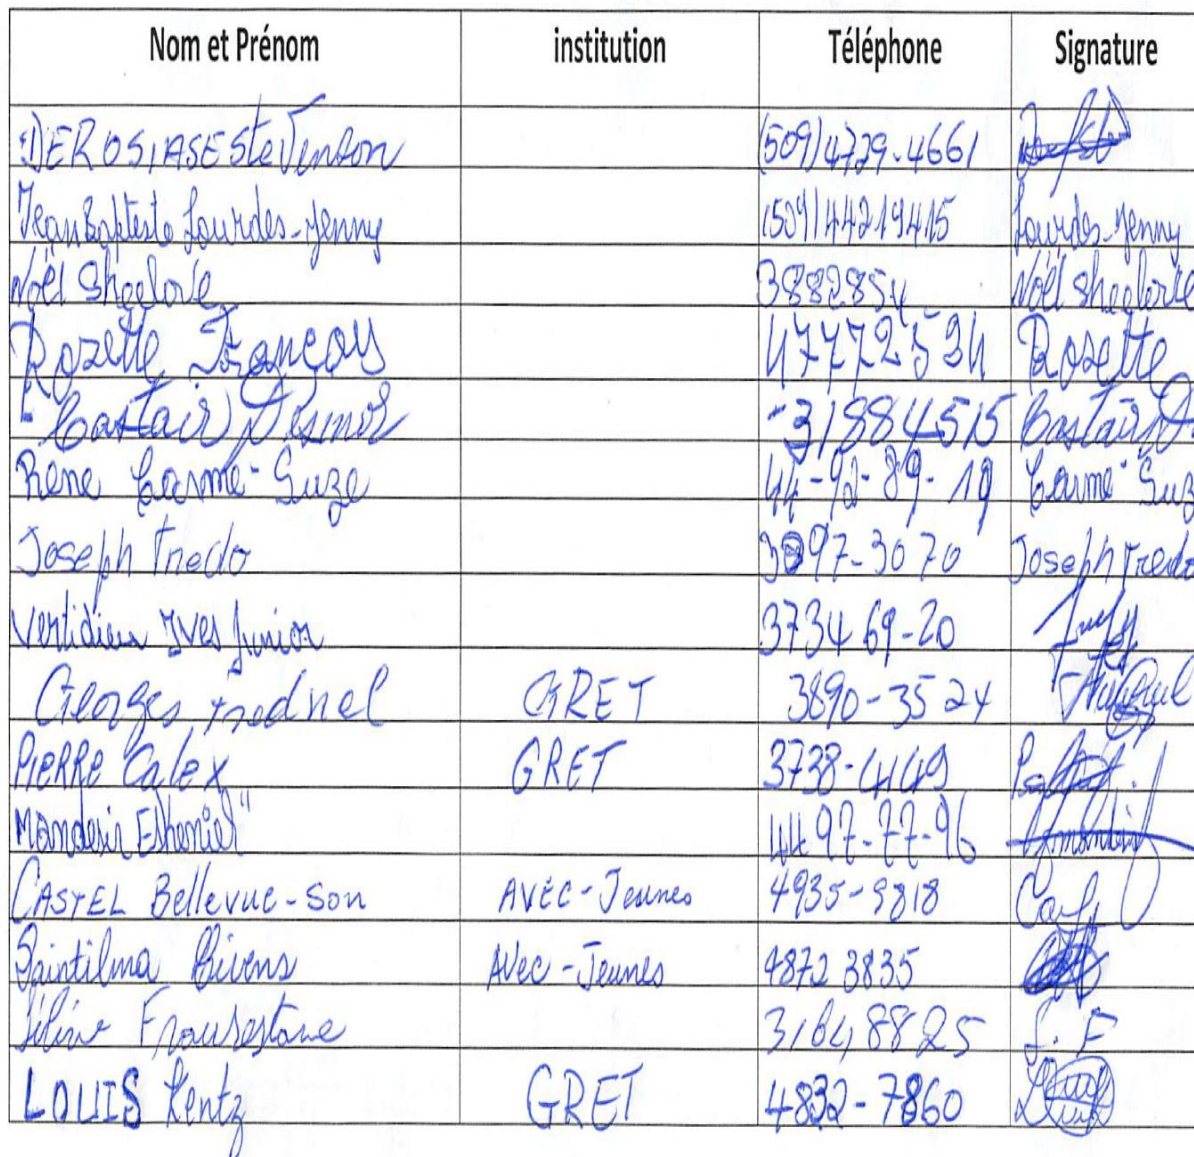 Nom et Prénom institution Téléphone Signature
DEROSIASE SteVenson (509)4729-4661
Jean Baptiste Lourdes-Jenny (509)44219415 Lourdes-Jenny
Noël Sheelove 3882854 Noël Sheelove
Rozette François 47772534 Rosette
Castair 31884515 Castair D
Rene Carme-Suze 44-92-89-19 Carme Suz
Joseph Fredo 3097-3070 Joseph Fredo
Vertidieu Yves Junior 3734 69-20
Georges Frednel GRET 3890-3524
PIERRE Calex GRET 3738-4149
Mandesir 4497-77-96
CASTEL Bellevue-Son AVEC-Jeunes 4935-9818
Saintilma Bivens AVec-Jeunes 4872 3835
31648825
LOUIS Kentz GRET 4832-7860